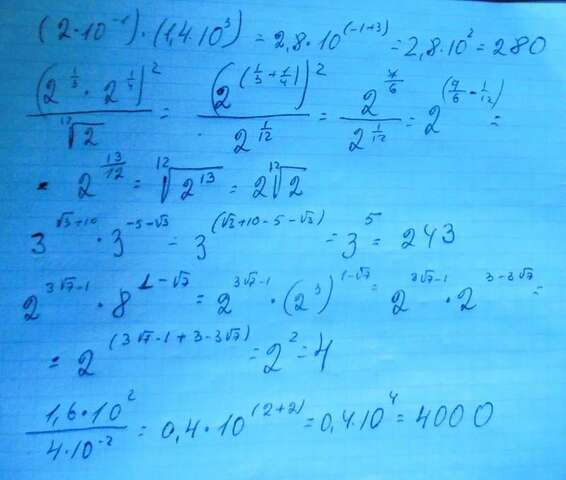 (2·10⁻¹)·(1,4·10³) = 2,8·10⁽⁻¹⁺³⁾ = 2,8·10² = 280
(2^(1/3) · 2^(1/4))² / ¹²√2 = (2^(1/3 + 1/4))² / 2^(1/12) = 2^(7/6) / 2^(1/12) = 2^(7/6 - 1/12) =
= 2^(13/12) = ¹²√2¹³ = 2 ¹²√2
3^(√3+10) · 3^(-5-√3) = 3^(√3+10-5-√3) = 3⁵ = 243
2^(3√7-1) · 8^(1-√7) = 2^(3√7-1) · (2³)^(1-√7) = 2^(3√7-1) · 2^(3-3√7) =
= 2^(3√7-1+3-3√7) = 2² = 4
1,6·10² / 4·10⁻² = 0,4·10⁽²⁺²⁾ = 0,4·10⁴ = 4000